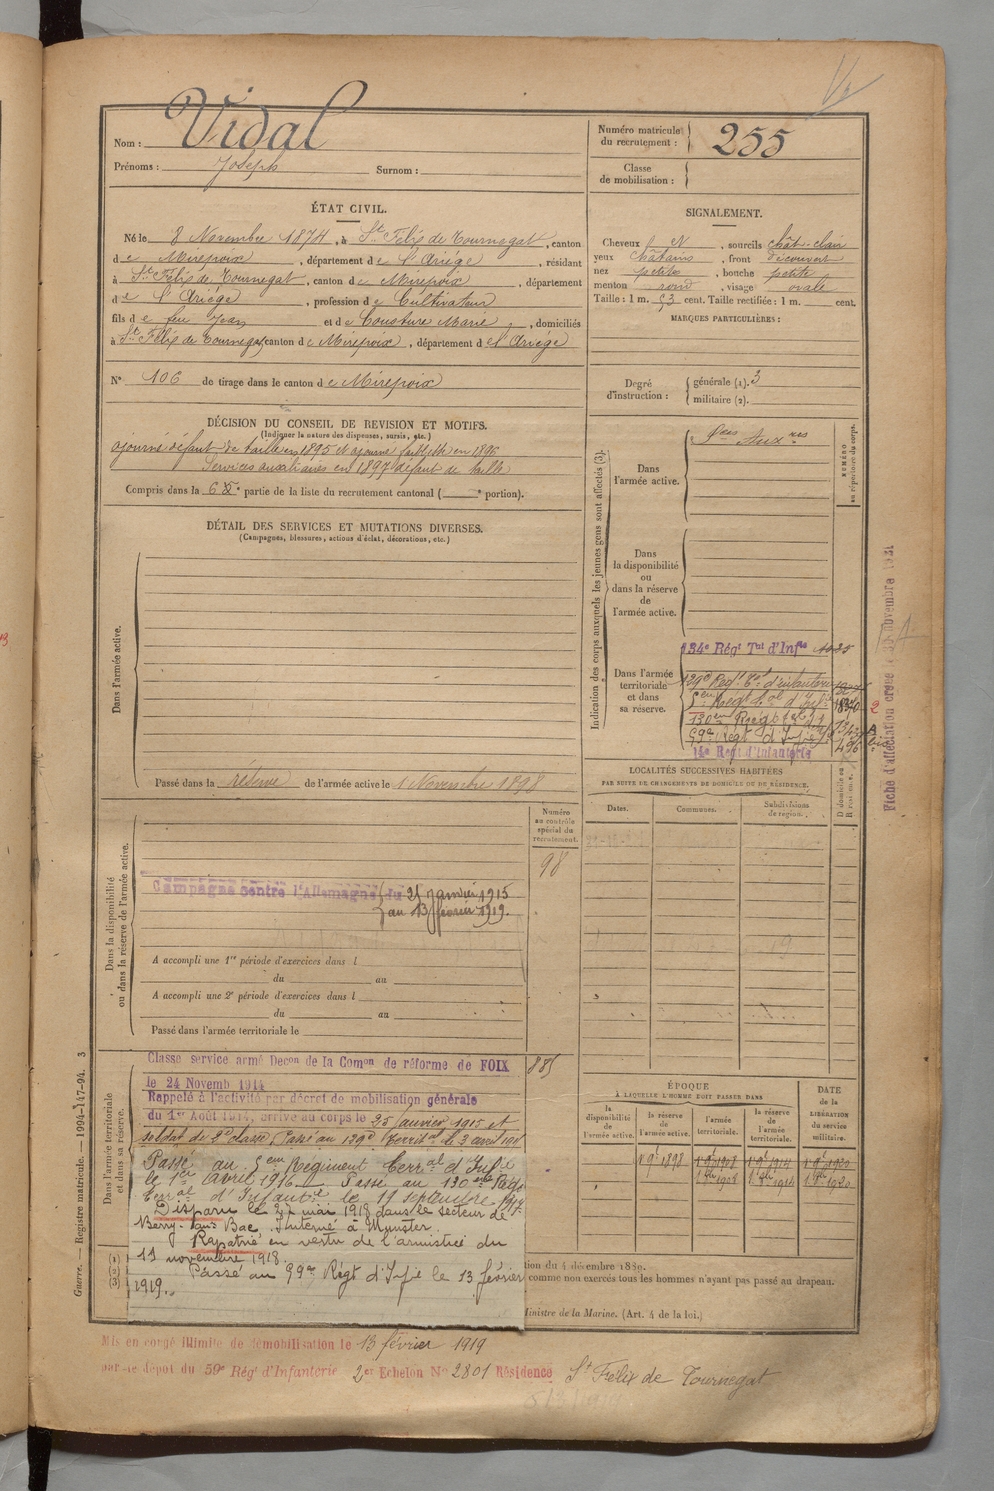 Nom : Vidal
Prénoms : Joseph Surnom :
Numéro matricule du recrutement : 255
Classe de mobilisation :
ÉTAT CIVIL.
Né le 8 Novembre 1874, à St Félix de Tournegat, canton
de Mirepoix, département de l'Ariége, résidant
à St Félix de Tournegat, canton de Mirepoix, département
de l'Ariége, profession de Cultivateur
fils de feu Jean et de Cousture Marie, domiciliés
à St Félix de Tournegat, canton de Mirepoix, département de l'Ariége
N° 106 de tirage dans le canton de Mirepoix
SIGNALEMENT.
Cheveux, sourcils chât-clair
yeux châtains, front découvert
nez petit, bouche petite
menton rond, visage ovale
Taille : 1 m. 53 cent. Taille rectifiée : 1 m. cent.
MARQUES PARTICULIÈRES :
Degré d'instruction : générale (1). 3
militaire (2).
DÉCISION DU CONSEIL DE REVISION ET MOTIFS.
(Indiquer la nature des dispenses, sursis, etc.)
ajourné défaut de taille en 1895 et ajourné faiblesse en 1896
Services auxiliaires en 1897 défaut de taille
Compris dans la 6e partie de la liste du recrutement cantonal ( e portion).
DÉTAIL DES SERVICES ET MUTATIONS DIVERSES.
(Campagnes, blessures, actions d'éclat, décorations, etc.)
Dans l'armée active.
Passé dans la réserve de l'armée active le 1 Novembre 1898
Indication des corps auxquels les jeunes gens sont affectés (3).
NUMÉRO au répertoire du corps.
Dans l'armée active.
Dans la disponibilité ou dans la réserve de l'armée active.
Dans l'armée territoriale et dans sa réserve.
134e Régt Tal d'Infie
139e Régt Tal d'infanterie
5em Régt Tal d'Infie
130em Régt
99e Régt d'Infie
14e Régt d'Infanterie
LOCALITÉS SUCCESSIVES HABITÉES
PAR SUITE DE CHANGEMENTS DE DOMICILE OU DE RÉSIDENCE.
Dates.
Communes.
Subdivisions de région.
D domicile ou R résidence.
Fiche d'affectation créée le 30 Novembre 1931
Numéro au contrôle spécial du recrutement.
98
Dans la disponibilité ou dans la réserve de l'armée active.
Campagne contre l'Allemagne du 25 Janvier 1915
au 13 février 1919.
A accompli une 1re période d'exercices dans l
du au
A accompli une 2e période d'exercices dans l
du au
Passé dans l'armée territoriale le
Dans l'armée territoriale et dans sa réserve.
885
Classé service armé Décon de la Comon de réforme de FOIX
le 24 Novemb 1914
Rappelé à l'activité par décret de mobilisation générale
du 1er Août 1914, arrivé au corps le 25 janvier 1915 et
soldat de 2e classe. Passé au 139e Territal le 3 avril 191
Passé au 5em Régiment Terral d'Infie
le 1er avril 1916. Passé au 130em Régt
Terral d'Infantie le 19 septembre 1917.
Disparu le 27 mai 1918 dans le secteur de
Berry-au-Bac. Interné à Munster.
Rapatrié en vertu de l'armistice du
11 novembre 1918
Passé au 99e Régt d'Infie le 13 février
1919.
ÉPOQUE
À LAQUELLE L'HOMME DOIT PASSER DANS
la disponibilité de l'armée active.
la réserve de l'armée active.
l'armée territoriale.
la réserve de l'armée territoriale.
DATE de la LIBÉRATION du service militaire.
1 9bre 1898
tion du 4 décembre 1889.
comme non exercés tous les hommes n'ayant pas passé au drapeau.
Ministre de la Marine. (Art. 4 de la loi.)
(1) (2) (3)
Guerre. — Registre matricule. — 1994-147-94. 3
Mis en congé illimité de démobilisation le 13 février 1919
par le dépôt du 59e Rég' d'Infanterie 2er Echelon No 2801 Résidence St Félix de Tournegat